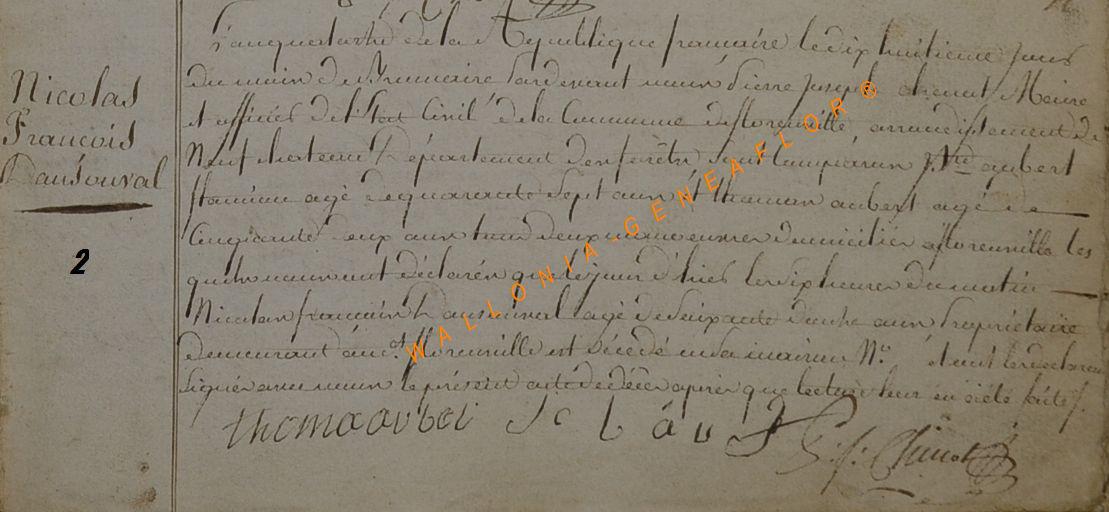 Nicolas
François
Dansouval
2
de la République française le dix huitieme jour
du mois de Brumaire pardevant nous Pierre Joseph Maire
et officier de l'Etat Civil de la Commune de florenville, arrondissement de
Neufchateau Département des forêts sont comparus aubert
agé de quarante sept ans et thomas aubert agé de
Cinquante deux ans tous deux domiciliés a florenville les
quels nous ont déclarés que le jour d'hier les dix heures du matin
Nicolas françois Dansouval agé de soixante douze ans Proprietaire
demeurant florenville est décédé en sa maison N.º et ont les declarans
signés avec nous le présent acte de décès après que lecture leur en a été faite.
thomas aubert
WALLONIA-GENEAFLOR®